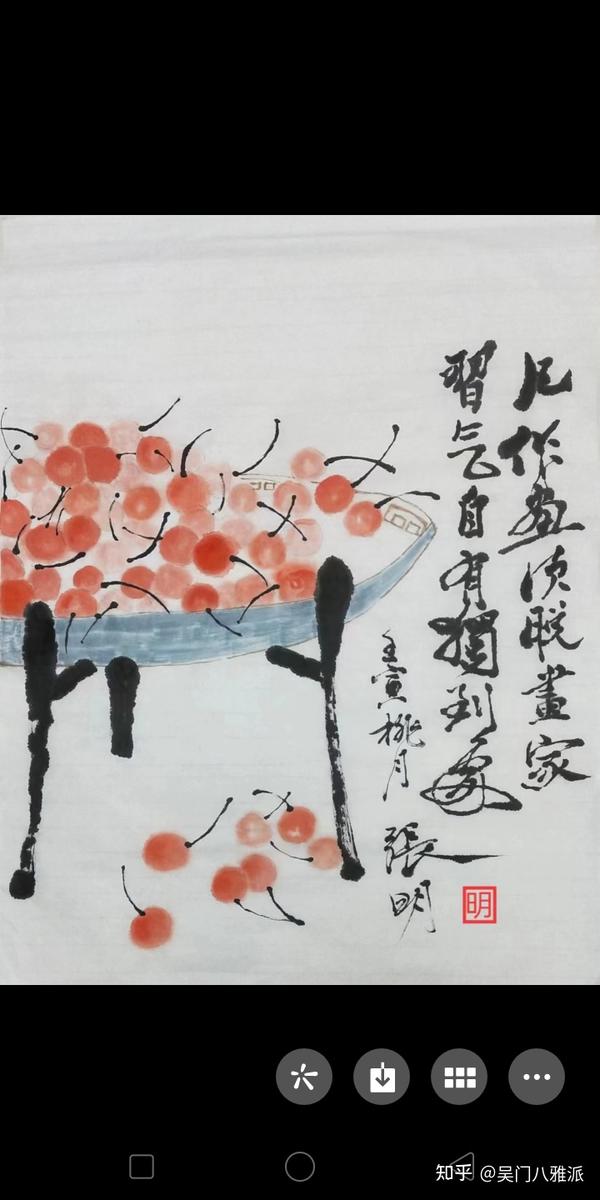 凡作画须脱畫家
習气自有獨到處
壬寅桃月
張明
明
知乎 @吴门八雅派